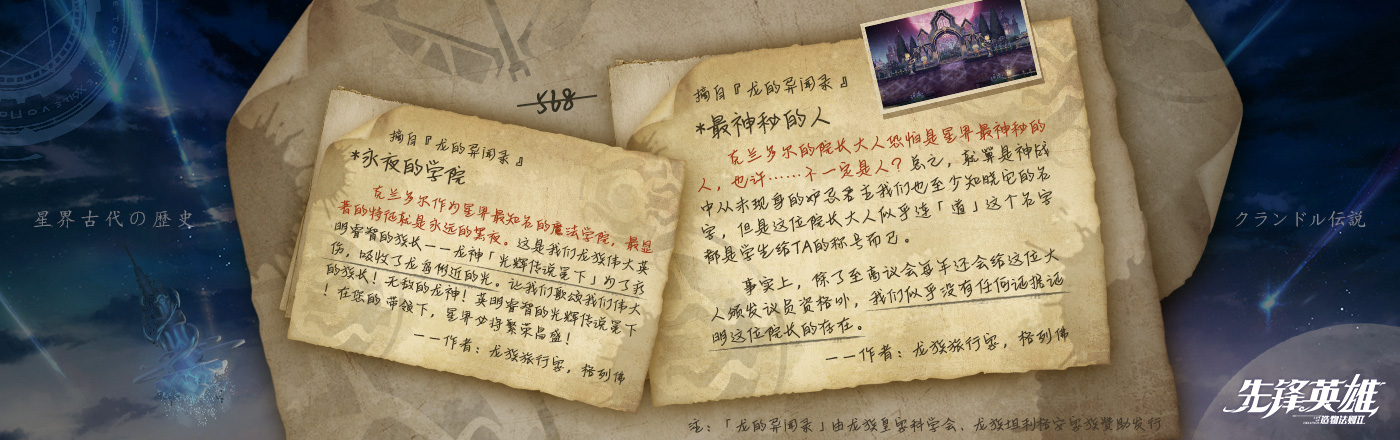 568
摘自『龙的异闻录』
*永夜的学院
克兰多尔作为星界最知名的魔法学院，最显
著的特征就是永远的黑夜。这是我们龙族伟大英
明睿智的族长——龙神「光辉传说冕下」为了我
伤，吸收了龙岛附近的光。让我们歌颂我们伟大
的族长！无敌的龙神！英明睿智的光辉传说冕下
！在您的带领下，星界必将繁荣昌盛！
——作者：龙族旅行家，格列佛
摘自『龙的异闻录』
*最神秘的人
克兰多尔的院长大人恐怕是星界最神秘的
人，也许……不一定是人？总之，就算是神战
中从未现身的妒忌君主我们也至少知晓它的名
字，但是这位院长大人似乎连「道」这个名字
都是学生给TA的称号而已。
事实上，除了至高议会每年还会给这位大
人颁发议员资格外，我们似乎没有任何证据证
明这位院长的存在。
——作者：龙族旅行家，格列佛
星界古代の歴史
クランドル伝説
先锋英雄
造物法则II
注：「龙的异闻录」由龙族皇家科学会、龙族坦利格安家族赞助发行